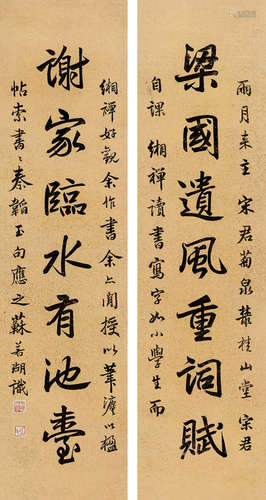 兩月來主宋君菊泉叢桂山堂宋君
梁國遺風重詞賦
自課緗禪讀書寫字如小學生而
緗禪好觀余作書余亦間授以筆灋以楹
謝家臨水有池臺
帖索書〻秦韜玉句應之蘇若湖識